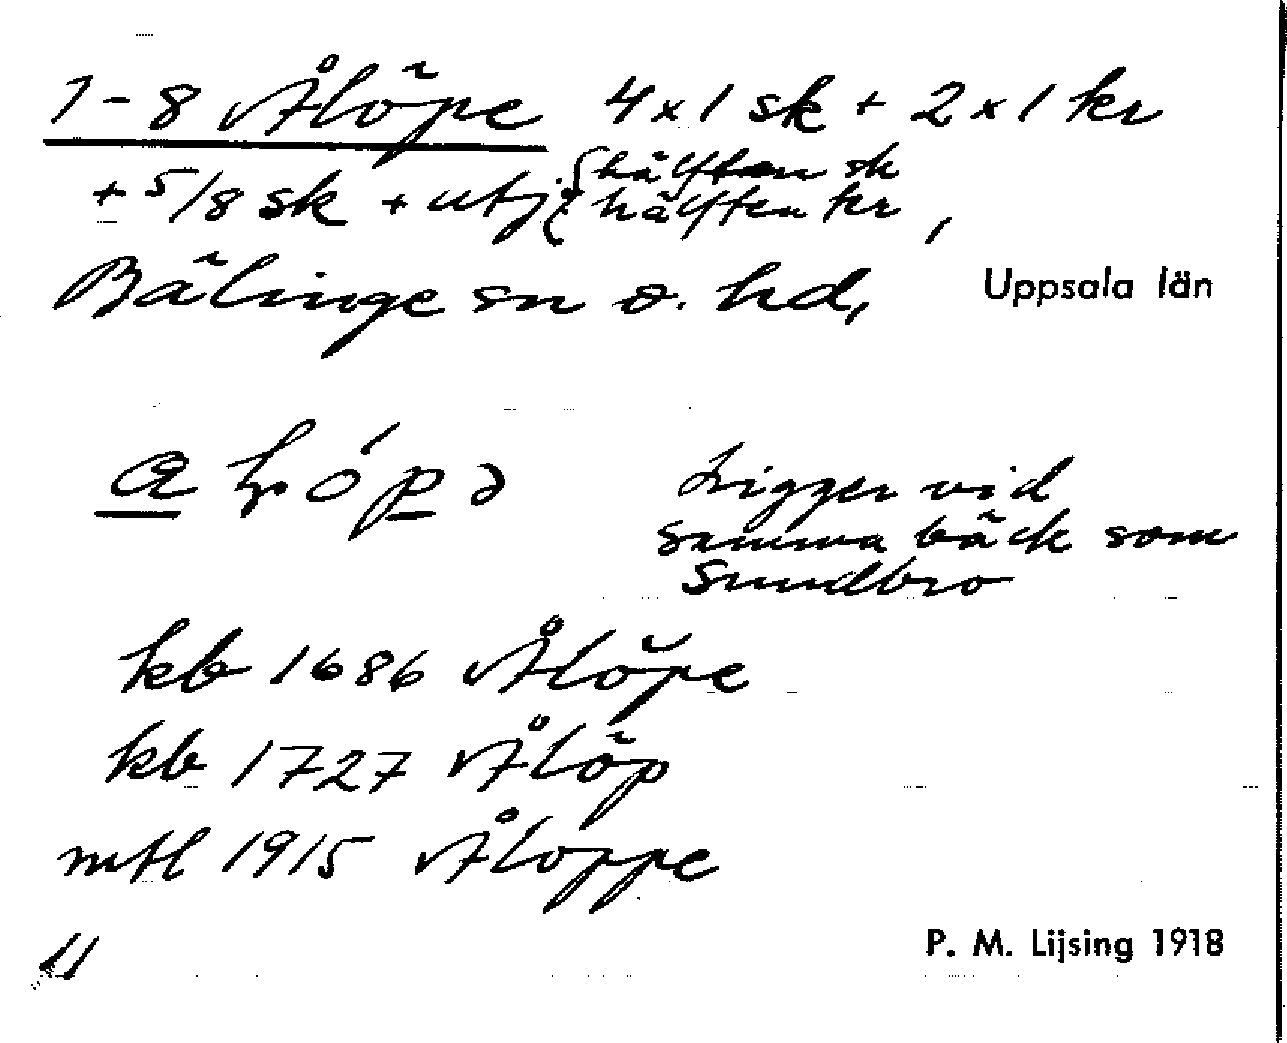 1-8 Ålöpe 4x1 sk + 2x1 kr
+ 5/8 sk + utj. { hälften sk
hälften kr,
Bälinge sn o. hd, Uppsala län
Ligger vid
samma bäck som
Sundbro
kb 1686 Ålöpe
kb 1727 Ålöp
mtl 1915 Åloppe
P. M. Lijsing 1918